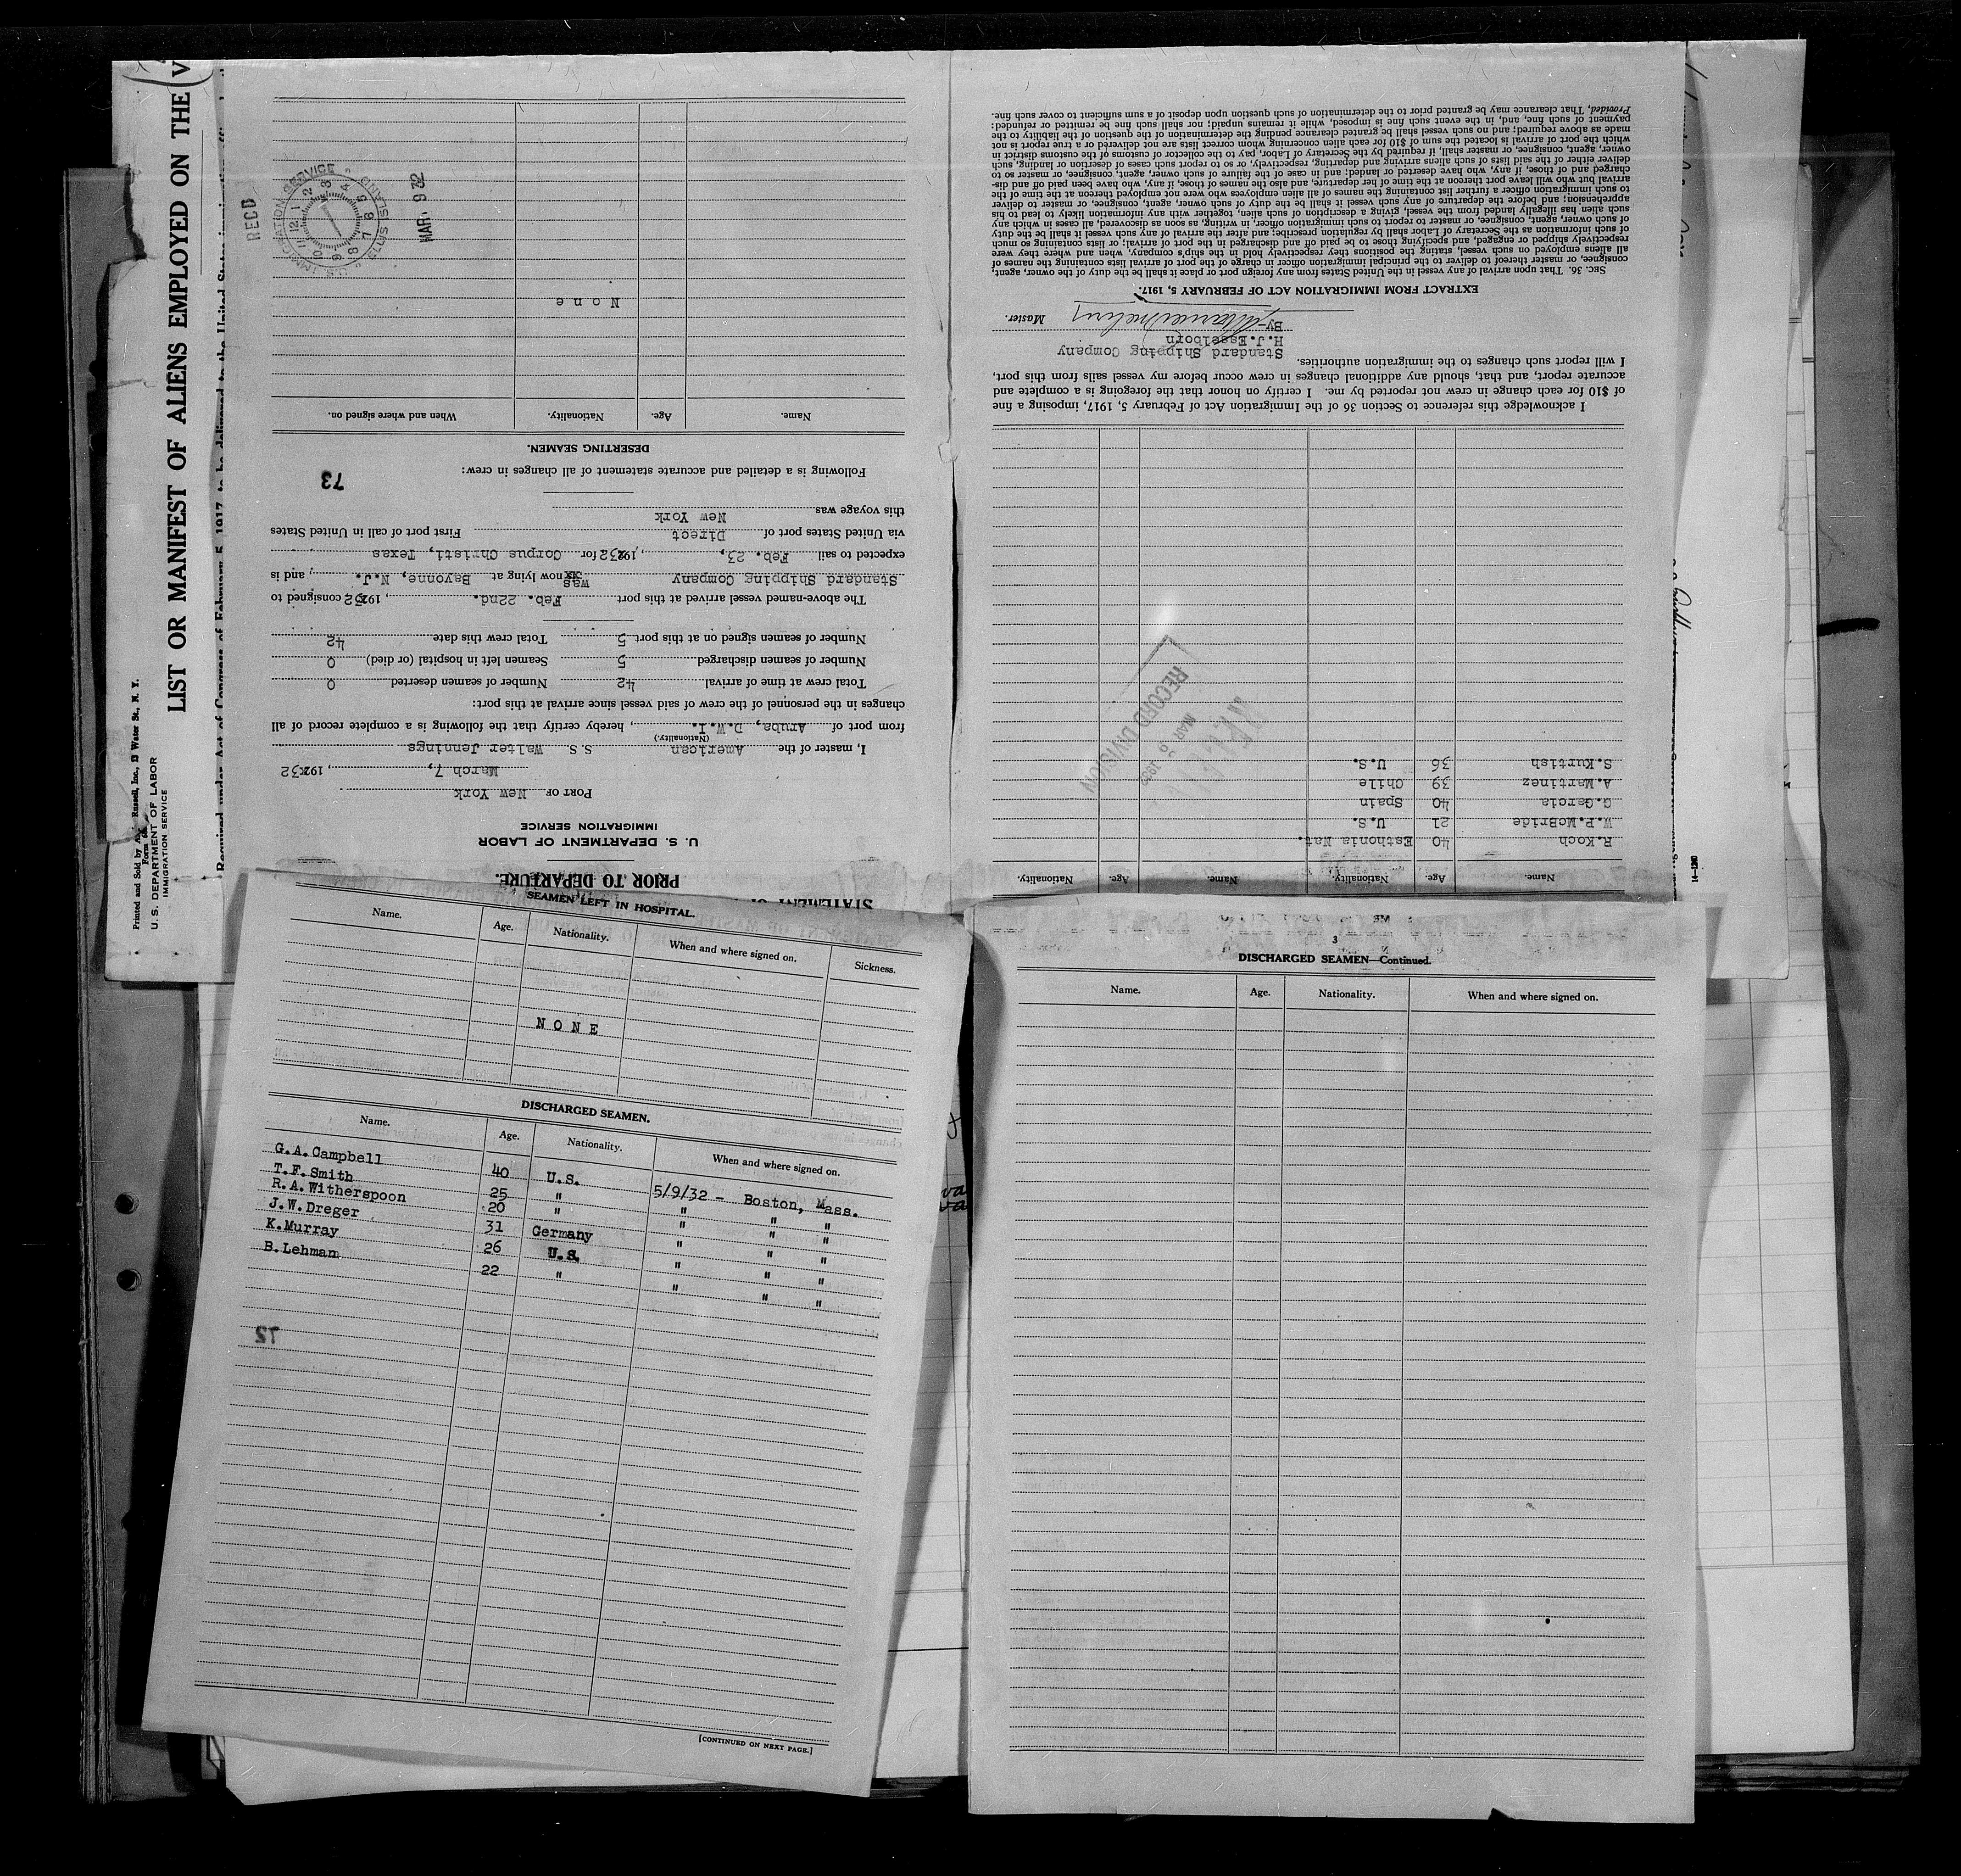 Printed and Sold by
Russell, Inc., 13 Water St., N. Y.
U. S. DEPARTMENT OF LABOR
IMMIGRATION SERVICE
LIST OR MANIFEST OF ALIENS EMPLOYED ON THE V
PRIOR TO DEPARTURE.
U. S. DEPARTMENT OF LABOR
IMMIGRATION SERVICE
PORT OF New York
March 7, 1932
I, master of the American S.S. Walter Jennings
(Nationality.)
from port of Aruba, D.W.I., hereby certify that the following is a complete record of all
changes in the personnel of the crew of said vessel since arrival at this port:
Total crew at time of arrival 42 Number of seamen deserted 0
Number of seamen discharged 5 Seamen left in hospital (or died) 0
Number of seamen signed on at this port 5 Total crew this date 42
The above-named vessel arrived at this port Feb. 22nd, 1932, consigned to
Standard Shipping Company was now lying at Bayonne, N.J., and is
expected to sail Feb. 23, 1932 for Corpus Christi, Texas
via United States port of Direct First port of call in United States
this voyage was New York
Following is a detailed and accurate statement of all changes in crew:
73
DESERTING SEAMEN.
Name. Age. Nationality. When and where signed on.
None
REC'D
U.S. IMMIGRATION SERVICE
MAR. 9 32
Name. Age. Nationality. Name. Age. Nationality.
R.Koch 40 Esthonia Nat.
W.P.McBride 21 U.S.
G.Garcia 40 Spain
A.Martinez 39 Chile
S.Kurtish 36 U.S.
RECORD DIVISION
MAR 9 1932
I acknowledge this reference to Section 36 of the Immigration Act of February 5, 1917, imposing a fine
of $10 for each change in crew not reported by me. I certify on honor that the foregoing is a complete and
accurate report, and that, should any additional changes in crew occur before my vessel sails from this port,
I will report such changes to the immigration authorities.
Standard Shipping Company
H.J.Esselborn
By- Master.
EXTRACT FROM IMMIGRATION ACT OF FEBRUARY 5, 1917.
Sec. 36. That upon arrival of any vessel in the United States from any foreign port or place it shall be the duty of the owner, agent,
consignee, or master thereof to deliver to the principal immigration officer in charge of the port of arrival lists containing the names of
all aliens employed on such vessel, stating the positions they respectively hold in the ship's company, when and where they were
respectively shipped or engaged, and specifying those to be paid off and discharged in the port of arrival; or lists containing so much
of such information as the Secretary of Labor shall by regulation prescribe; and after the arrival of any such vessel it shall be the duty
of such owner, agent, consignee, or master to report to such immigration officer, in writing, as soon as discovered, all cases in which any
such alien has illegally landed from the vessel, giving a description of such alien, together with any information likely to lead to his
apprehension; and before the departure of any such vessel it shall be the duty of such owner, agent, consignee, or master to deliver
to such immigration officer a further list containing the names of all alien employees who were not employed thereon at the time of the
arrival but who will leave port thereon at the time of her departure, and also the names of those, if any, who have been paid off and dis-
charged and of those, if any, who have deserted or landed; and in case of the failure of such owner, agent, consignee, or master so to
deliver either of the said lists of such aliens arriving and departing, respectively, or so to report such cases of desertion or landing, such
owner, agent, consignee, or master shall, if required by the Secretary of Labor, pay to the collector of customs of the customs district in
which the port of arrival is located the sum of $10 for each alien concerning whom correct lists are not delivered or a true report is not
made as above required; and no such vessel shall be granted clearance pending the determination of the question of the liability to the
payment of such fine, and, in the event such fine is imposed, while it remains unpaid; nor shall such fine be remitted or refunded:
Provided, That clearance may be granted prior to the determination of such question upon deposit of a sum sufficient to cover such fine.
SEAMEN LEFT IN HOSPITAL.
Name. Age. Nationality. When and where signed on. Sickness.
NONE
DISCHARGED SEAMEN.
Name. Age. Nationality. When and where signed on.
G.A.Campbell 40 U.S. 5/9/32 - Boston, Mass.
T.F.Smith 25 " " " "
R.A.Witherspoon 20 " " " "
J.W.Dreger 31 Germany " " "
K.Murray 26 U.S. " " "
B.Lehman 22 " " " "
72
[CONTINUED ON NEXT PAGE.]
3
DISCHARGED SEAMEN—Continued.
Name. Age. Nationality. When and where signed on.